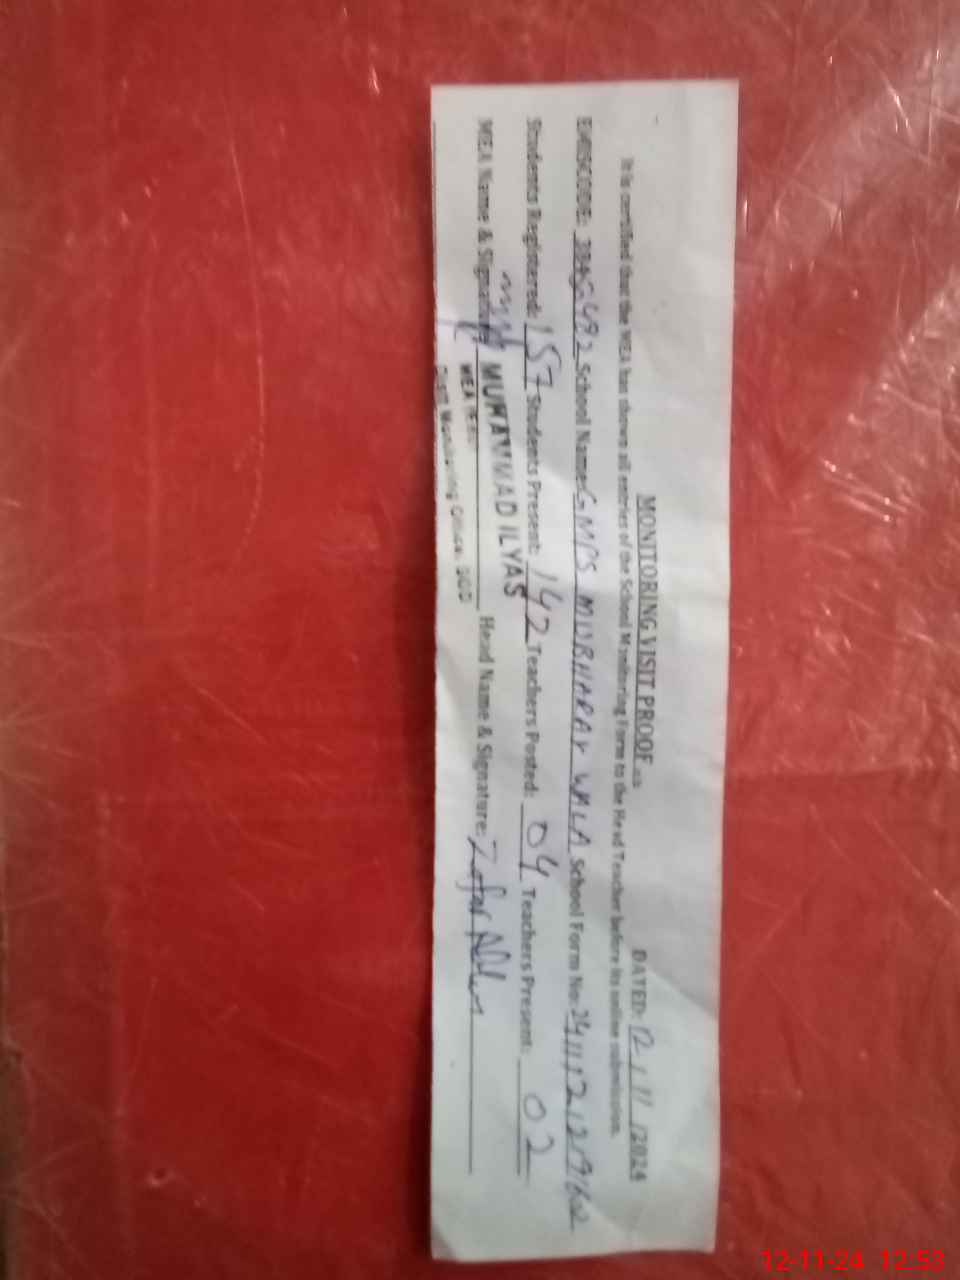 MONITORING VISIT PROOF DATED: 12/11/2024
It is certified that the MEA has shown all entries of the School Monitoring Form to the Head Teacher before its online submission.
EMISCODE: School Name: GMPS WALA School Form No:
Students Registered: 157 Students Present: 142 Teachers Posted: 04 Teachers Present: 02
MEA Name & Signature MUHAMMAD ILYAS Head Name & Signature: Zafar
MEA
Monitoring
12-11-24 12:53